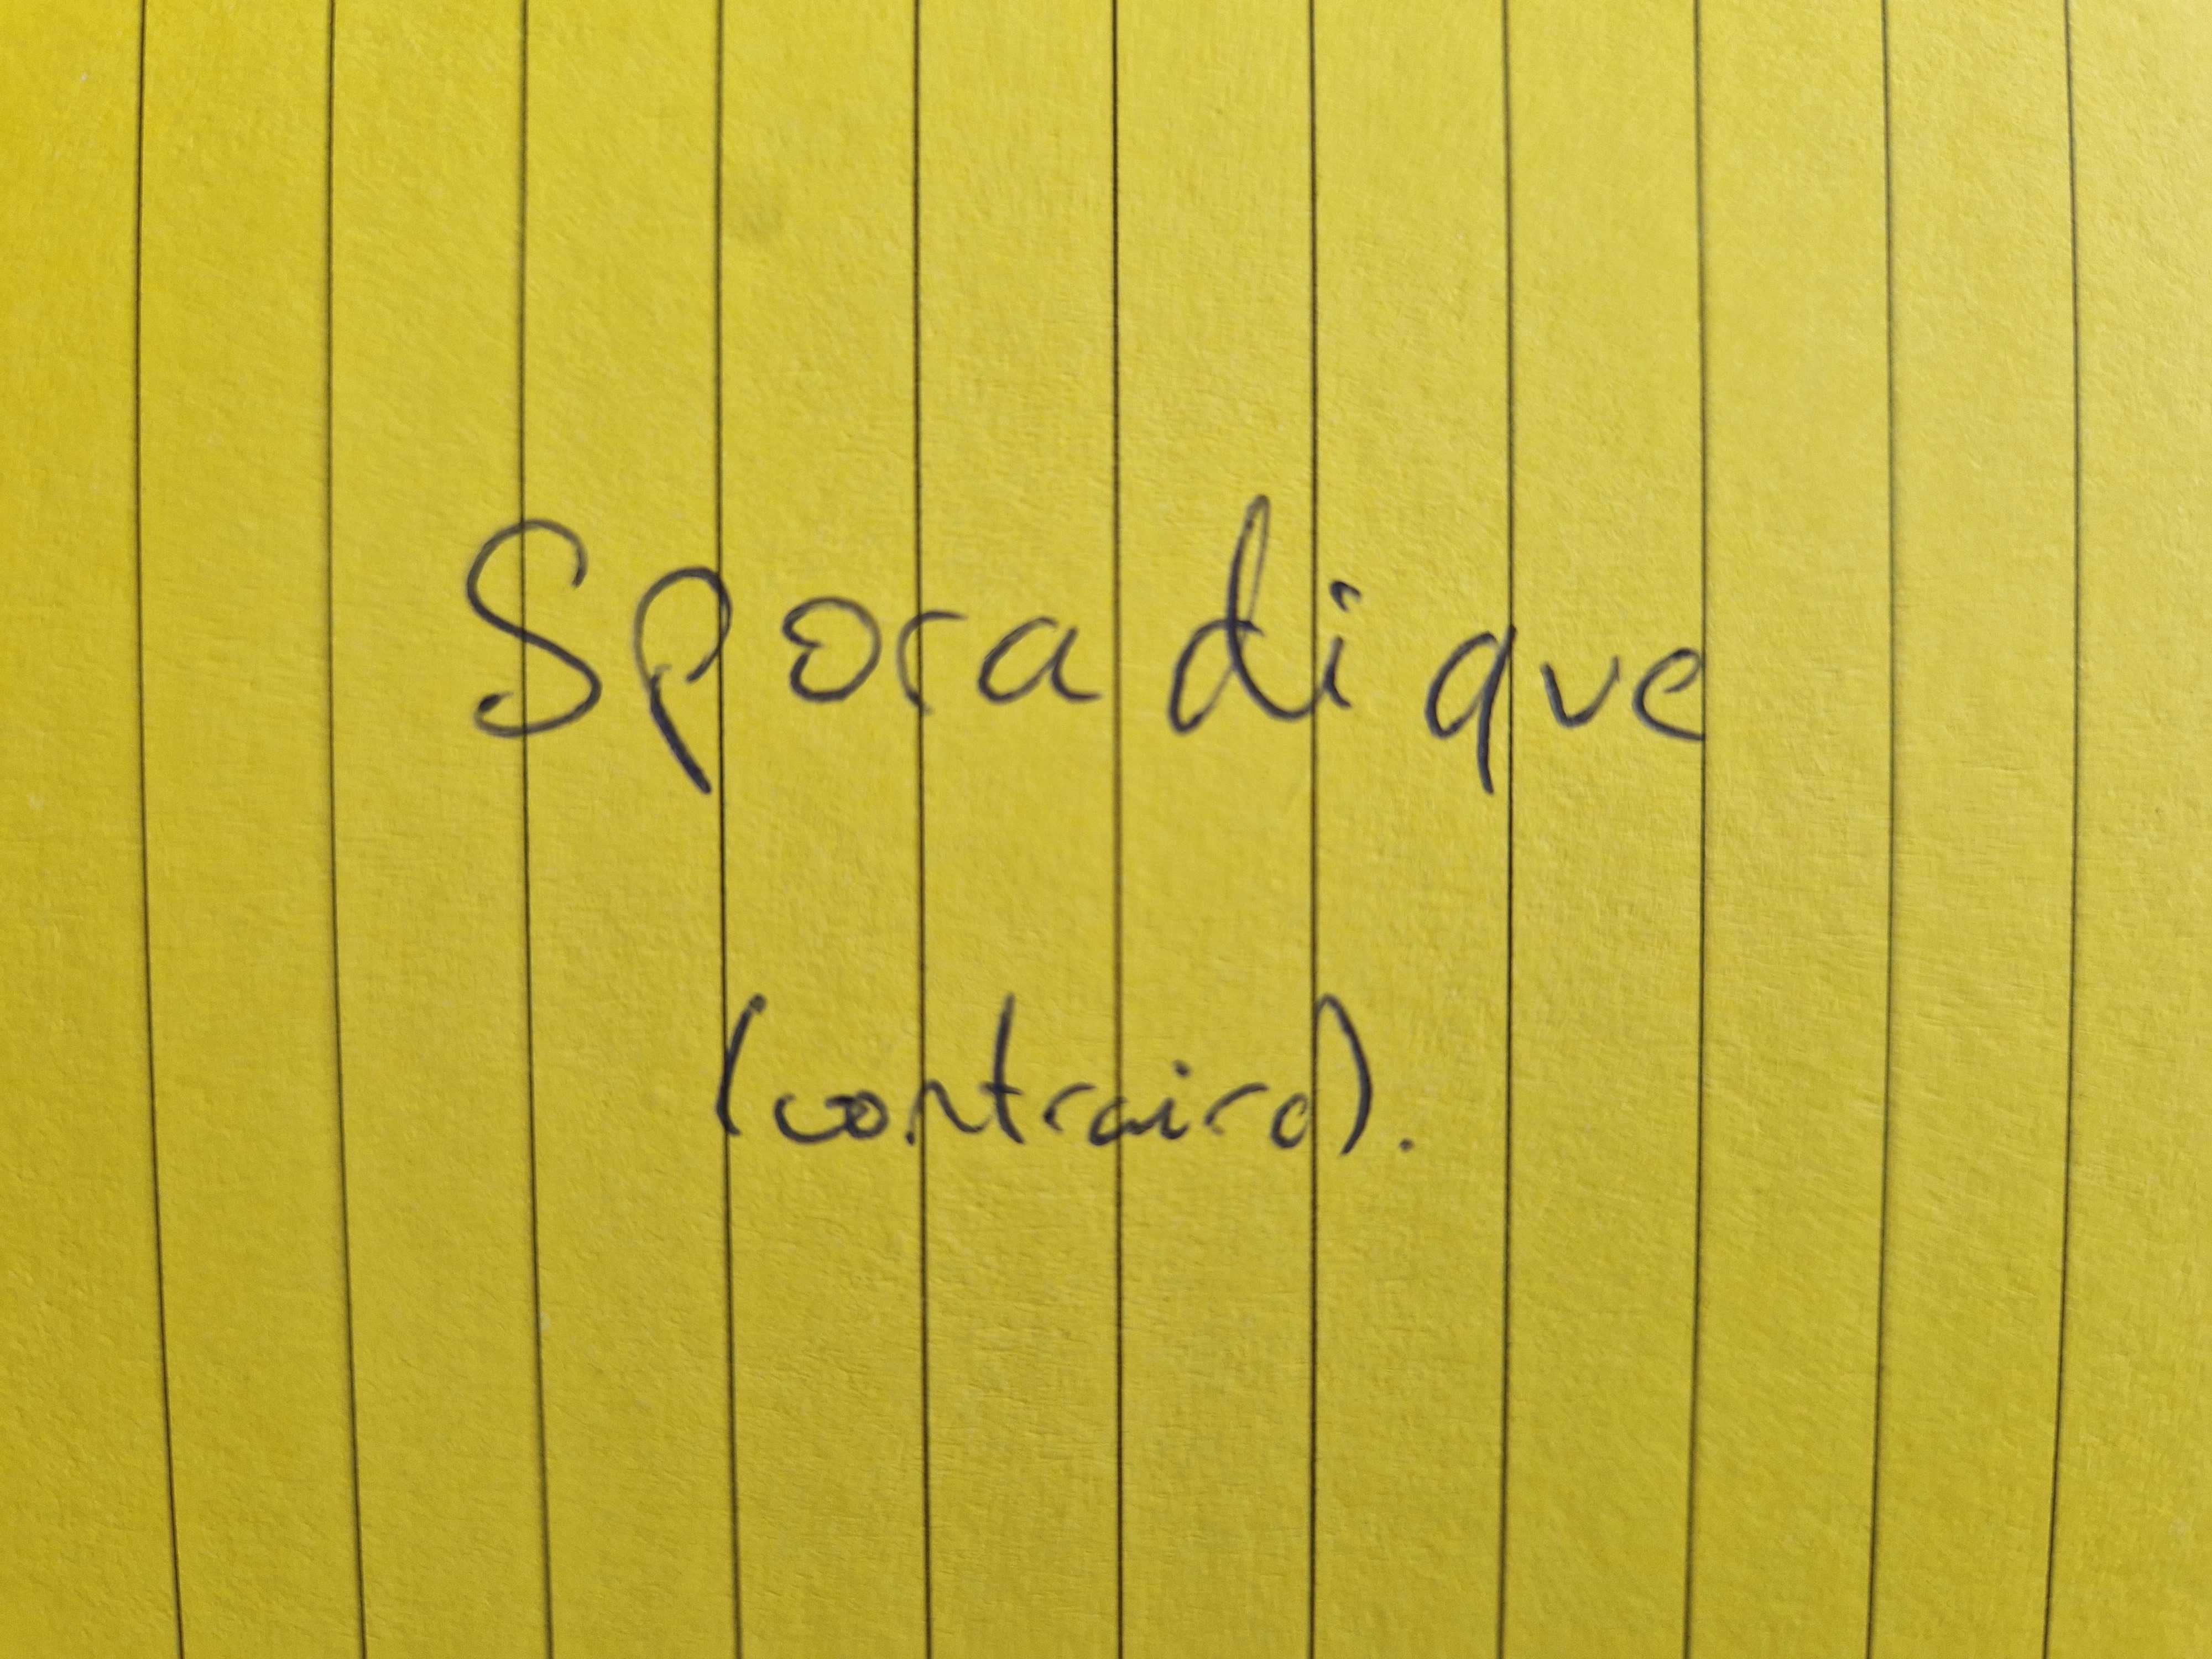 Sporadique
(contraire).